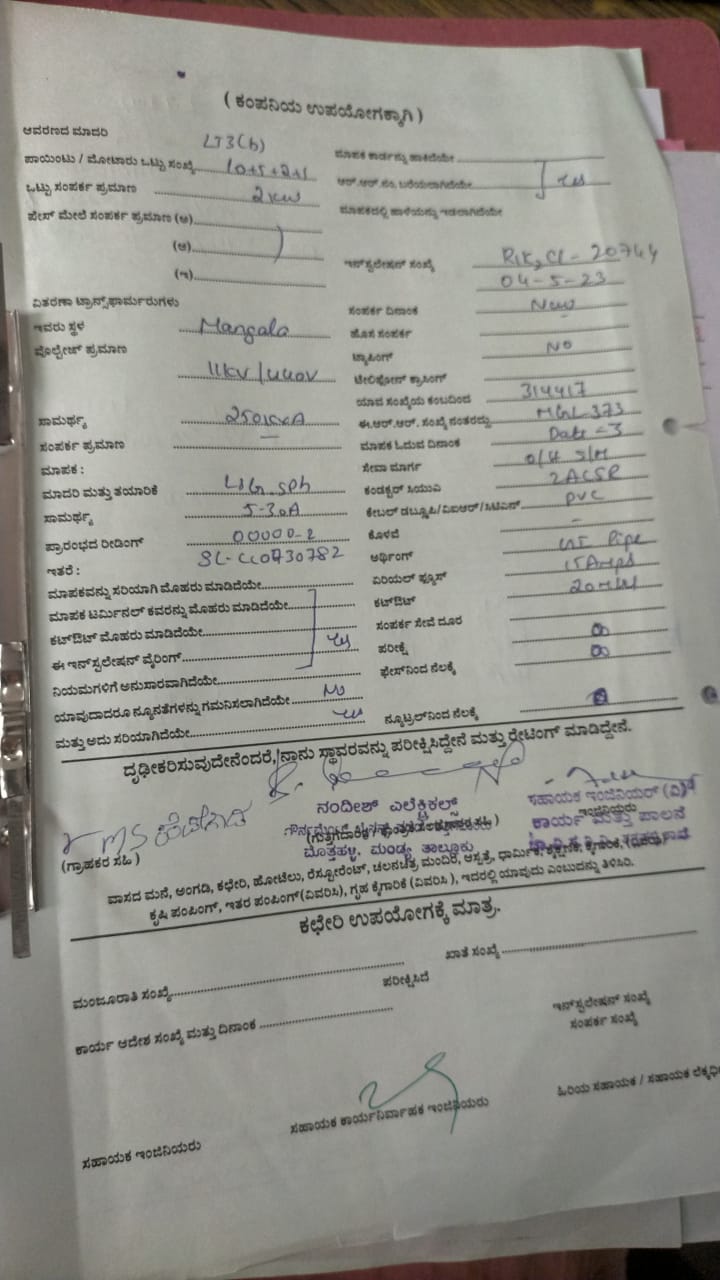 ( ಕಂಪನಿಯ ಉಪಯೋಗಕ್ಕಾಗಿ )
ಆವರಣದ ಮಾದರಿ LT3(b)
ಪಾಯಿಂಟು / ಮೋಟಾರು ಒಟ್ಟು ಸಂಖ್ಯೆ 10+5+2+1
ಮಾಪಕ ಕಾರ್ಡನ್ನು ಹಾಕಿದೆಯೇ
ಒಟ್ಟು ಸಂಪರ್ಕ ಪ್ರಮಾಣ 2 KW
ಆರ್.ಆರ್.ನಂ. ಬರೆಯಲಾಗಿದೆಯೇ Yes
ಫೇಸ್ ಮೇಲೆ ಸಂಪರ್ಕ ಪ್ರಮಾಣ (ಅ)
ಮಾಪಕದಲ್ಲಿ ಹಾಳೆಯನ್ನು ಇಡಲಾಗಿದೆಯೇ
(ಆ)
(ಇ)
ಇನ್‌ಸ್ಟಲೇಷನ್ ಸಂಖ್ಯೆ 20744
04-5-23
ವಿತರಣಾ ಟ್ರಾನ್ಸ್‌ಫಾರ್ಮರುಗಳು
ಸಂಪರ್ಕ ದಿನಾಂಕ New
ಇವರು ಸ್ಥಳ Mangala
ಹೊಸ ಸಂಪರ್ಕ
ವೋಲ್ಟೇಜ್ ಪ್ರಮಾಣ 11KV/440V
ಟ್ಯಾಪಿಂಗ್ NO
ಟೆಲಿಫೋನ್ ಕ್ರಾಸಿಂಗ್
ಯಾವ ಸಂಖ್ಯೆಯ ಕಂಬದಿಂದ 314417
ಸಾಮರ್ಥ್ಯ 250KVA
ಈ.ಆರ್.ಆರ್. ಸಂಖ್ಯೆ ನಂತರದ್ದು MGL 373
ಸಂಪರ್ಕ ಪ್ರಮಾಣ —
ಮಾಪಕ ಓದುವ ದಿನಾಂಕ Date - 3
ಮಾಪಕ :
ಸೇವಾ ಮಾರ್ಗ O/H S/M
ಮಾದರಿ ಮತ್ತು ತಯಾರಿಕೆ L&G SPh
ಕಂಡಕ್ಟರ್ ಸಿಯುವಿ 2ACSR
ಸಾಮರ್ಥ್ಯ 5-30A
ಕೇಬಲ್ ಡಬ್ಲೂಪಿ/ವಿಐಆರ್/ಸಿಟಿಎಸ್ PVC
ಪ್ರಾರಂಭದ ರೀಡಿಂಗ್ 00000-2
ಕೊಳವೆ -
ಇತರೆ : SL-CC0730782
ಅರ್ಥಿಂಗ್ GI Pipe
ಮಾಪಕವನ್ನು ಸರಿಯಾಗಿ ಮೊಹರು ಮಾಡಿದೆಯೇ
ಏರಿಯಲ್ ಫ್ಯೂಸ್ 15 Amps
ಮಾಪಕ ಟರ್ಮಿನಲ್ ಕವರನ್ನು ಮೊಹರು ಮಾಡಿದೆಯೇ
ಕಟ್‌ಔಟ್
ಕಟ್‌ಔಟ್ ಮೊಹರು ಮಾಡಿದೆಯೇ Yes
ಸಂಪರ್ಕ ಸೇವೆ ದೂರ
ಈ ಇನ್‌ಸ್ಟಲೇಷನ್ ವೈರಿಂಗ್
ಪರೀಕ್ಷೆ ∞
ನಿಯಮಗಳಿಗೆ ಅನುಸಾರವಾಗಿದೆಯೇ
ಫೇಸ್‌ನಿಂದ ನೆಲಕ್ಕೆ ∞
ಯಾವುದಾದರೂ ನ್ಯೂನತೆಗಳನ್ನು ಗಮನಿಸಲಾಗಿದೆಯೇ No
ಮತ್ತು ಅದು ಸರಿಯಾಗಿದೆಯೇ Yes
ನ್ಯೂಟ್ರಲ್‌ನಿಂದ ನೆಲಕ್ಕೆ
ದೃಢೀಕರಿಸುವುದೇನೆಂದರೆ, ನಾನು ಸ್ಥಾವರವನ್ನು ಪರೀಕ್ಷಿಸಿದ್ದೇನೆ ಮತ್ತು ರೇಟಿಂಗ್ ಮಾಡಿದ್ದೇನೆ.
ನಂದೀಶ್ ಎಲೆಕ್ಟ್ರಿಕಲ್ಸ್
ಮೊತ್ತಹಳ್ಳಿ, ಮಂಡ್ಯ ತಾಲ್ಲೂಕು
ಸಹಾಯಕ ಇಂಜಿನಿಯರ್ (ವಿ)
ಇಂಜಿನಿಯರು
ಕಾರ್ಯ ಮತ್ತು ಪಾಲನೆ
(ಗ್ರಾಹಕರ ಸಹಿ )
ವಾಸದ ಮನೆ, ಅಂಗಡಿ, ಕಛೇರಿ, ಹೋಟೆಲು, ರೆಸ್ಟೋರೆಂಟ್, ಚಲನಚಿತ್ರ ಮಂದಿರ, ಆಸ್ಪತ್ರೆ, ಧಾರ್ಮಿಕ, ಶೈಕ್ಷಣಿಕ, ಕೈಗಾರಿಕೆ, (ವಿವರಿಸಿ)
ಕೃಷಿ ಪಂಪಿಂಗ್, ಇತರ ಪಂಪಿಂಗ್(ವಿವರಿಸಿ), ಗೃಹ ಕೈಗಾರಿಕೆ (ವಿವರಿಸಿ ), ಇದರಲ್ಲಿ ಯಾವುದು ಎಂಬುದನ್ನು ತಿಳಿಸಿರಿ.
ಕಛೇರಿ ಉಪಯೋಗಕ್ಕೆ ಮಾತ್ರ.
ಮಂಜೂರಾತಿ ಸಂಖ್ಯೆ
ಖಾತೆ ಸಂಖ್ಯೆ
ಪರೀಕ್ಷಿಸಿದೆ
ಕಾರ್ಯ ಆದೇಶ ಸಂಖ್ಯೆ ಮತ್ತು ದಿನಾಂಕ
ಇನ್‌ಸ್ಟಲೇಷನ್ ಸಂಖ್ಯೆ
ಸಂಪರ್ಕ ಸಂಖ್ಯೆ
ಸಹಾಯಕ ಇಂಜಿನಿಯರು
ಸಹಾಯಕ ಕಾರ್ಯನಿರ್ವಾಹಕ ಇಂಜಿನಿಯರು
ಹಿರಿಯ ಸಹಾಯಕ / ಸಹಾಯಕ